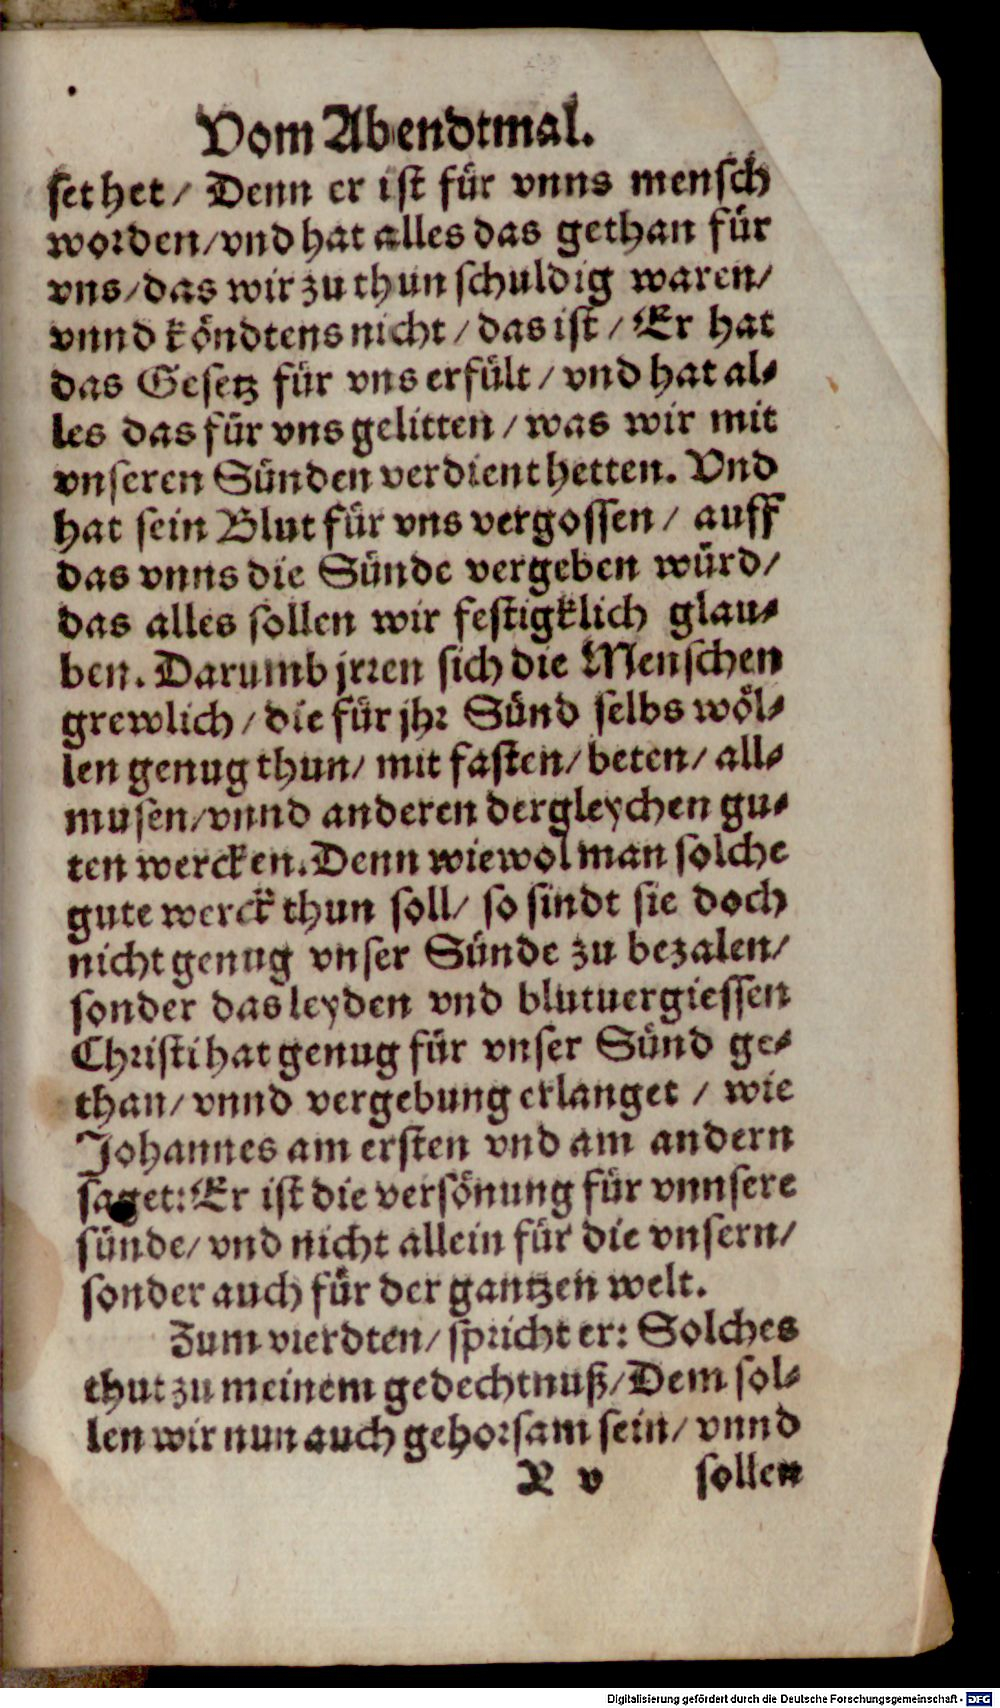 Vom Abendtmal.
set het/ Denn er ist für vnns mensch
worden/vnd hat alles das gethan für
vns/das wir zu thun schuldig waren/
vnnd köndtens nicht/das ist/Er hat
das Gesetz für vns erfült/vnd hat al-
les das für vns gelitten/was wir mit
vnseren Sünden verdient hetten. Vnd
hat sein Blut für vns vergossen/ auff
das vnns die Sünde vergeben würd/
das alles sollen wir festigklich glau-
ben. Darumb jrren sich die Menschen
grewlich/die für jhr Sünd selbs wöl-
len genug thun/ mit fasten/beten/all-
musen/vnnd anderen dergleychen gu-
ten wercken.Denn wiewol man solche
gute werck thun soll/ so sindt sie doch
nicht genug vnser Sünde zu bezalen/
sonder das leyden vnd blutuergiessen
Christi hat genug für vnser Sünd ge-
than/vnnd vergebung erlanget / wie
Johannes am ersten vnd am andern
saget:Er ist die versönung für vnnsere
sünde/vnd nicht allein für die vnsern/
sonder auch für der gantzen welt.
Zum vierdten/spricht er: Solches
thut zu meinem gedechtnuß/Dem sol-
len wir nun auch gehorsam sein/vnnd
R v sollen
Digitalisierung gefördert durch die Deutsche Forschungsgemeinschaft - DFG